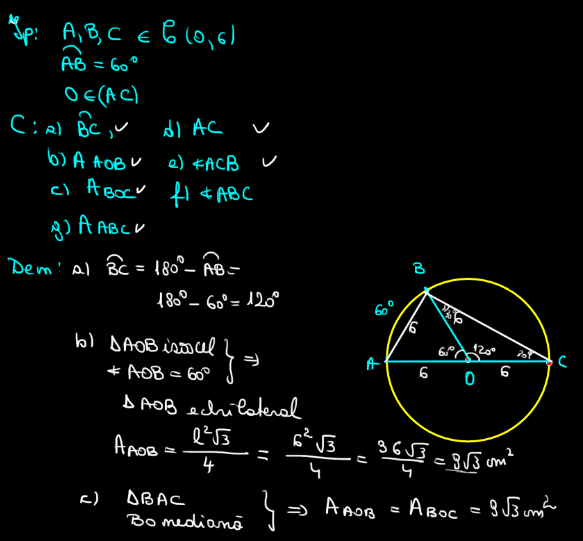 Ip: A, B, C ∈ C(O, 6)
AB = 60°
O ∈ (AC)
C: a) BC, ✓ d) AC ✓
b) A AOB ✓ e) ∢ACB ✓
c) A BOC ✓ f) ∢ABC
g) A ABC ✓
Dem: a) BC = 180° - AB =
180° - 60° = 120°
b) ΔAOB isoscel
∢ AOB = 60° } ⇒
ΔAOB echilateral
A AOB = l²√3 / 4 = 6²√3 / 4 = 36√3 / 4 = 9√3 cm²
c) ΔBAC
BO mediană } ⇒ A AOB = A BOC = 9√3 cm²
B
60°
6
6
60° 120°
A
C
6
O
6